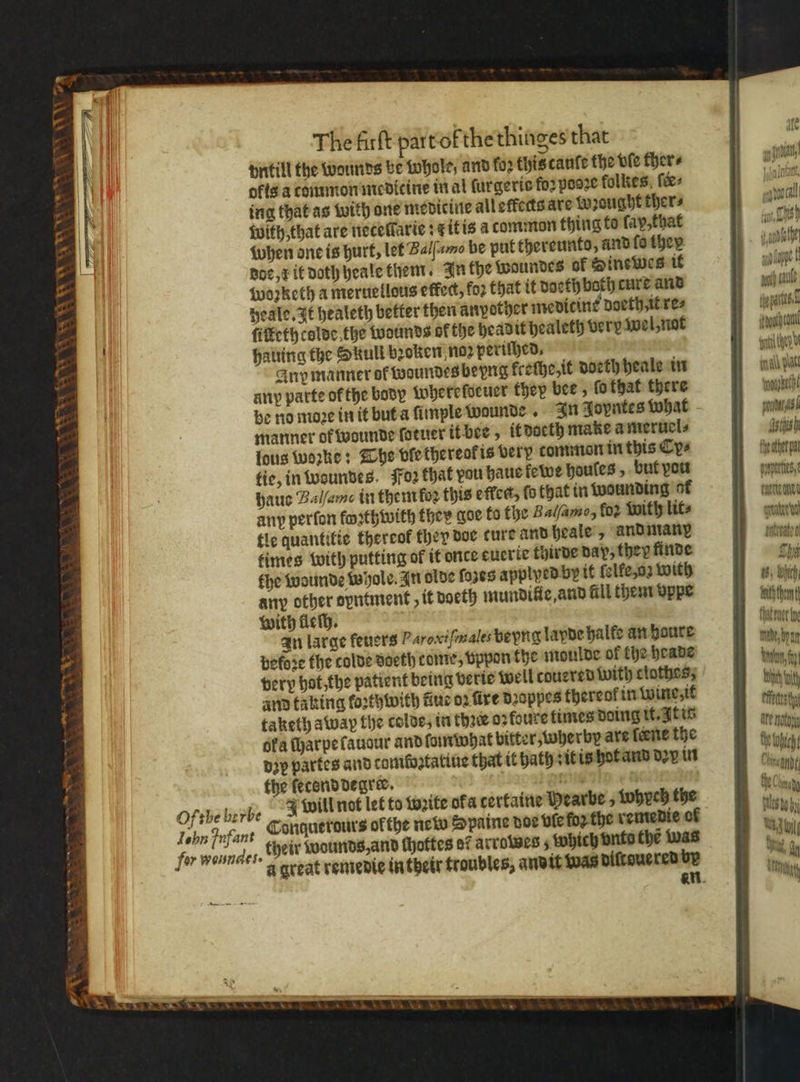 The first part of the thinges that
vntill the wounds be whole, and for this cause the vse ther=
of is a common medicine in al surgerie for poore folkes, sée=
ing that as with one medicine all effects are wrought ther=
with, that are necessarie: & it is a common thing to say, that
when one is hurt, let Balsamo be put thereunto, and so they
doe, & it doth heale them. In the woundes of Sinewes it
worketh a meruellous effect, for that it doeth both cure and
heale. It healeth better then any other medicine doeth, it re=
sisteth colde. the wounds of the head it healeth very wel, not
hauing the Skull broken, nor perished.
Any manner of woundes beyng freshe, it doeth heale in
any parte of the body wheresoeuer they bee, so that there
be no more in it but a simple wounde. In Joyntes what
manner of wounde soeuer it bee, it doeth make a meruel=
lous worke: The vse thereof is very common in this Cy=
tie, in woundes. For that you haue fewe houses, but you
haue Balsamo in them for this effect, so that in wounding of
any person forthwith they goe to the Balsamo, for with lit=
tle quantitie thereof they doe cure and heale, and many
times with putting of it once euerie thirde day, they finde
the wounde whole. In olde sores applyed by it selfe, or with
any other oyntment, it doeth mundifie, and fill them vppe
with flesh.
In large feuers Paroxismales beyng layde halfe an houre
before the colde doeth come, vppon the moulde of the heade
very hot, the patient being verie well couered with clothes,
and taking forthwith fiue or sixe droppes thereof in wine, it
taketh away the colde, in thrée or foure times doing it. It is
of a sharpe sauour and somwhat bitter, wherby are séene the
dry partes and comfortatiue that it hath: it is hot and dry in
the second degrée.
I will not let to write of a certaine Hearbe, whych the
Of the herbe Conquerours of the new Spaine doe vse for the remedie of
Iohn Infant their wounds, and shottes of arrowes, which vnto thē was
for woundes. a great remedie in their troubles, and it was discouered by
an